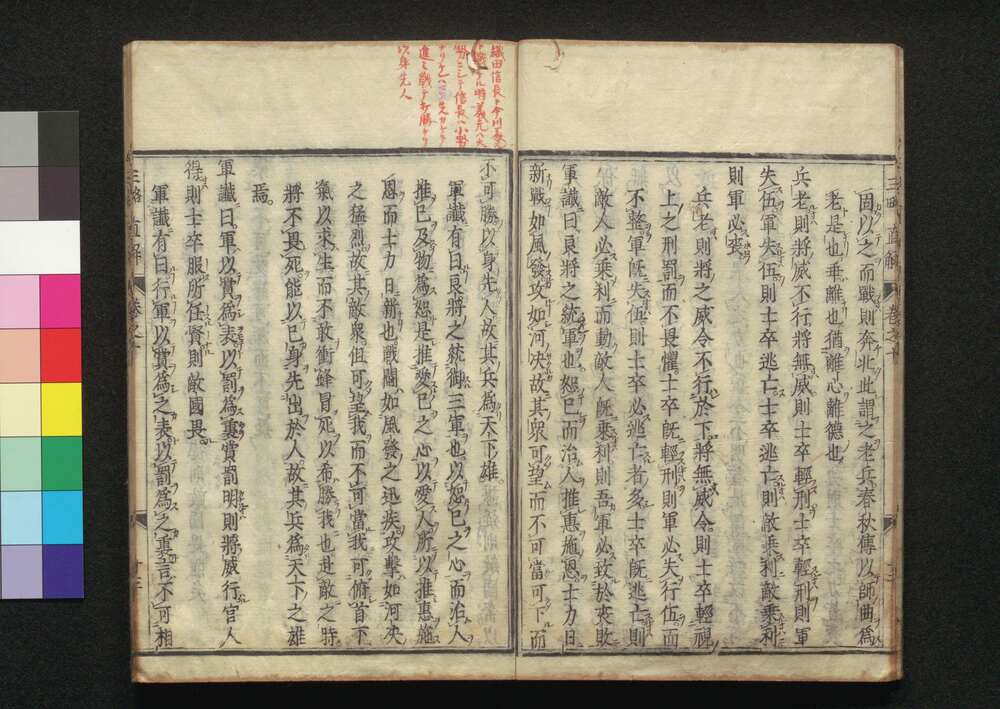 因以之而戰則奔北此謂之老兵春秋傳以師曲爲
老是也乖離也猶離心離德也
兵老則將威不行將無威則士卒輕刑士卒輕刑則軍
失伍軍失伍則士卒逃亡士卒逃亡則敵乘利敵乘利
則軍必喪
兵老則將之威令不行於下將無威令則士卒輕視
上之刑罰而不畏懼士卒旣輕刑則軍必失行伍而
不整軍旣失伍則士卒必逃亡者多士卒旣逃亡則
敵人必乘利而動敵人旣乘利則吾軍必致於喪敗
軍讖曰良將之統軍也恕已而治人推惠施恩士力日
新戰如風發攻如河決故其衆可望而不可當可下而
不可勝以身先人故其兵爲天下雄
軍讖有曰良將之統御三軍也以恕已之心而治人
推已及物爲恕是推愛已之心以愛人所以推惠施
恩而士力日新也戰鬭如風發之迅疾攻擊如河決
之猛烈故其敵衆但可望我而不可當我可俯首下
氣以求生而不敢衝鋒冒死以希勝我也進敵之時
將不畏死能以已身先出於人故其兵爲天下之雄
焉
軍讖曰軍以賞爲表以罰爲裏賞罰明則將威行官人
得則士卒服所任賢則敵國畏
軍讖有曰行軍以賞爲之表以罰爲之裏言不可相
三略直解
卷之
織田信長ト今川義元
時義元ハ大
勢
信長ハ小勢
進ミ戰テ打勝タリ
以身先人